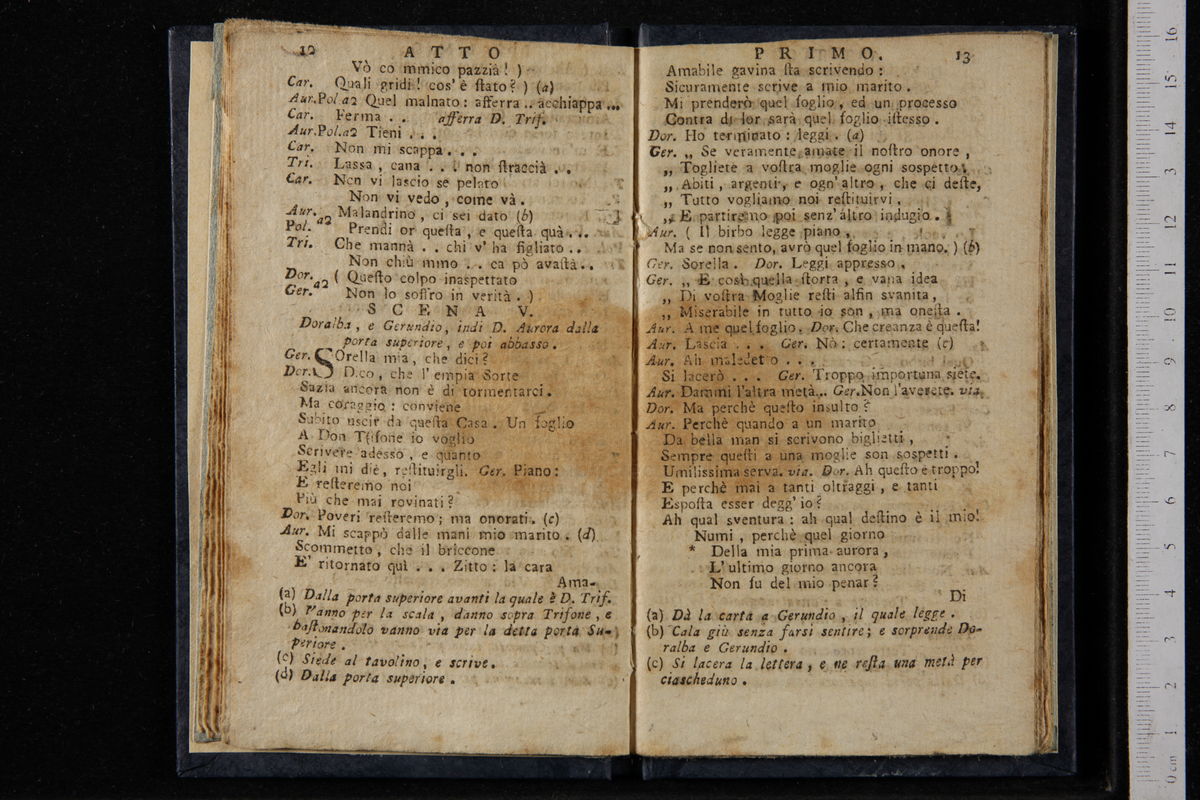 12 ATTO
Vò co mmico pazzia! )
Car. Quali gridi! cos' è ſtato? ) (a)
Aur.Pol.a2 Quel malnato: afferra .. acchiappa ...
Car. Ferma . . afferra D. Trif.
Aur.Pol.a2 Tieni . . .
Car. Non mi scappa . . .
Tri. Lassa, cana . . . non ſtraccià . .
Car. Non vi lascio se pelato
Non vi vedo, come và.
Aur. a2 Malandrino, ci sei dato (b)
Pol. Prendi or queſta, e queſta quà . . .
Tri. Che mannà . . chi v' ha figliato . .
Non chiù mmo . . ca pò avaſtà . .
Dor. a2 ( Queſto colpo inaspettato
Ger. Non lo soffro in verità . )
SCENA V.
Doralba, e Gerundio, indi D. Aurora dalla
porta superiore, e poi abbasso.
Ger. SOrella mia, che dici?
Dor. D.co, che l' empia Sorte
Sazia ancora non è di tormentarci.
Ma coraggio: conviene
Subito uscir da queſta Casa. Un foglio
A Don Trifone io voglio
Scrivere adesso, e quanto
Egli mi diè, reſtituirgli. Ger. Piano:
E reſteremo noi
Più che mai rovinati?
Dor. Poveri reſteremo; ma onorati. (c)
Aur. Mi scappò dalle mani mio marito. (d)
Scommetto, che il briccone
E' ritornato quì . . . Zitto: la cara
Ama-
(a) Dalla porta superiore avanti la quale è D. Trif.
(b) Vanno per la scala, danno sopra Trifone, e
baſtonandolo vanno via per la detta porta Su-
periore.
(c) Siede al tavolino, e scrive.
(d) Dalla porta superiore.
PRIMO. 13
Amabile gavina ſta scrivendo:
Sicuramente scrive a mio marito.
Mi prenderò quel foglio, ed un processo
Contra di lor sarà quel foglio iſtesso.
Dor. Ho terminato: leggi. (a)
Ger. „ Se veramente amate il noſtro onore,
„ Togliete a voſtra moglie ogni sospetto;
„ Abiti, argenti, e ogn' altro, che ci deſte,
„ Tutto vogliamo noi reſtituirvi,
„ E partiremo poi senz' altro indugio.
Aur. ( Il birbo legge piano,
Ma se non sento, avrò quel foglio in mano. ) (b)
Ger. Sorella. Dor. Leggi appresso,
Ger. „ E così quella ſtorta, e vana idea
„ Di voſtra Moglie reſti alfin svanita,
„ Miserabile in tutto io son, ma oneſta.
Aur. A me quel foglio. Dor. Che creanza è queſta!
Aur. Lascia . . . Ger. Nò: certamente (c)
Aur. Ah maledetto . . .
Si lacerò . . . Ger. Troppo importuna siete.
Aur. Dammi l'altra metà... Ger. Non l'averete. via
Dor. Ma perchè queſto insulto?
Aur. Perchè quando a un marito
Da bella man si scrivono biglietti,
Sempre queſti a una moglie son sospetti.
Umilissima serva. via. Dor. Ah queſto è troppo!
E perchè mai a tanti oltraggi, e tanti
Espoſta esser degg' io?
Ah qual sventura: ah qual deſtino è il mio!
Numi, perchè quel giorno
* Della mia prima aurora,
L' ultimo giorno ancora
Non fu del mio penar?
Di
(a) Dà la carta a Gerundio, il quale legge.
(b) Cala giù senza farsi sentire; e sorprende Do-
ralba e Gerundio.
(c) Si lacera la lettera, e ne reſta una metà per
ciascheduno.
0 cm 1 2 3 4 5 6 7 8 9 10 11 12 13 14 15 16